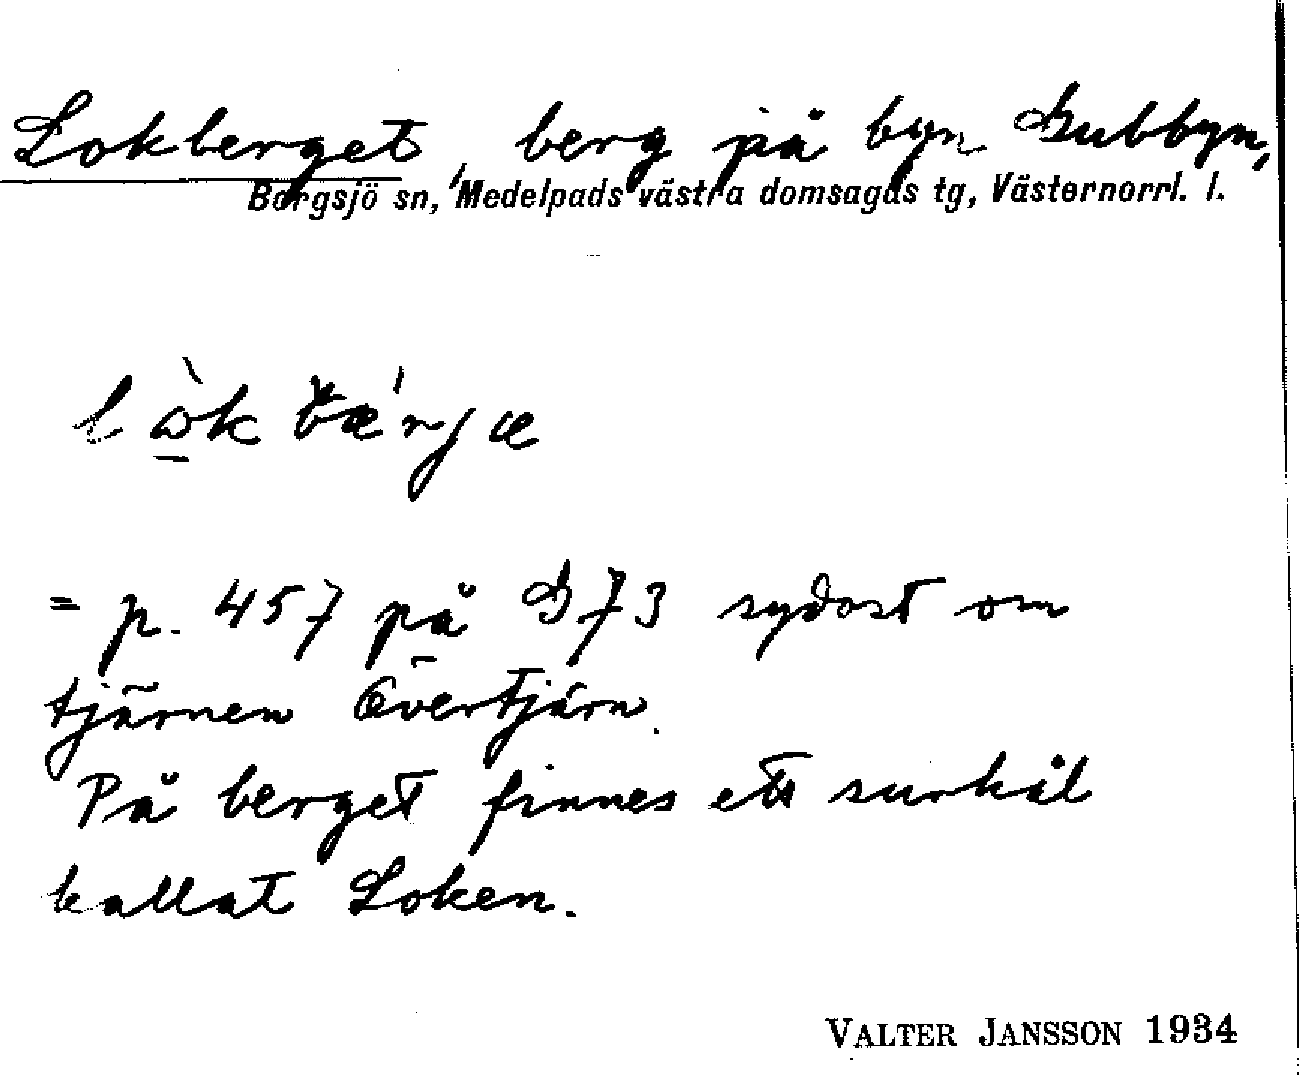 Lokberget, berg på byn Gubbyn,
Borgsjö sn, Medelpads västra domsagas tg, Västernorrl. l.
= p. 457 på G 73 sydost om
tjärnen Övertjärn.
På berget finnes ett surhål
kallat Loken.
VALTER JANSSON 1934